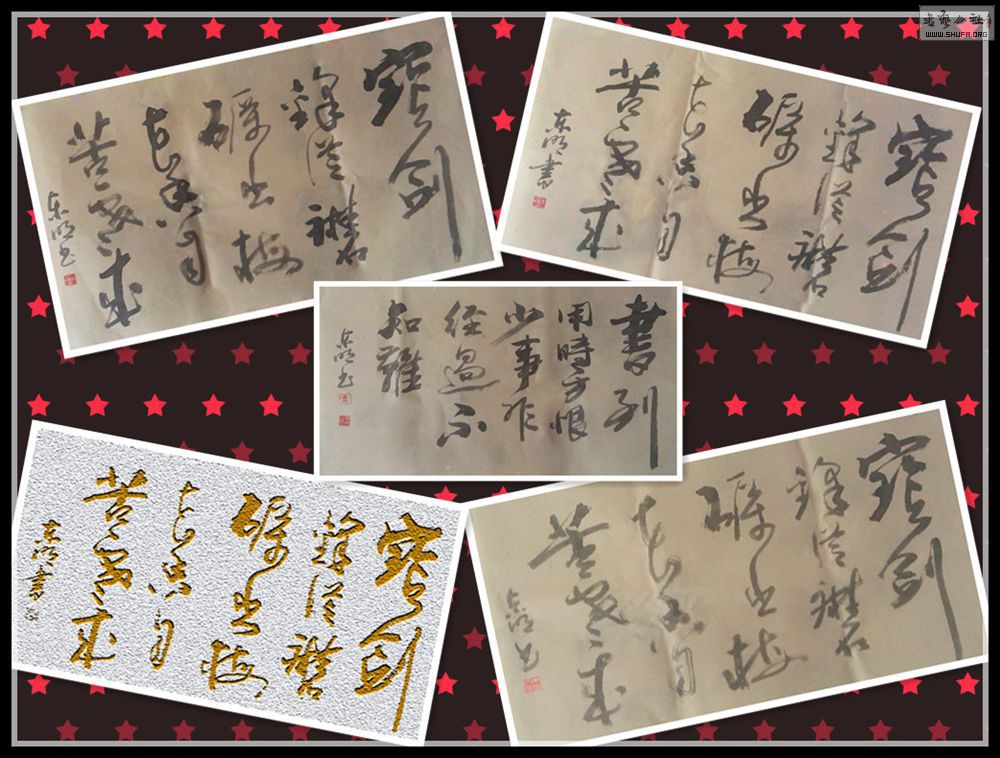 書藝公社
WWW.SHUFA.ORG
寶劍
鋒從磨
礪出梅
花香自
苦寒来
东明书
寶劍
鋒從磨
礪出梅
花香自
苦寒来
东明書
書到
用時方恨
少事非
經過不
知難
东明书
寶劍
鋒從磨
礪出梅
花香自
苦寒来
东明書
寶劍
鋒從磨
礪出梅
花香自
苦寒来
东明书